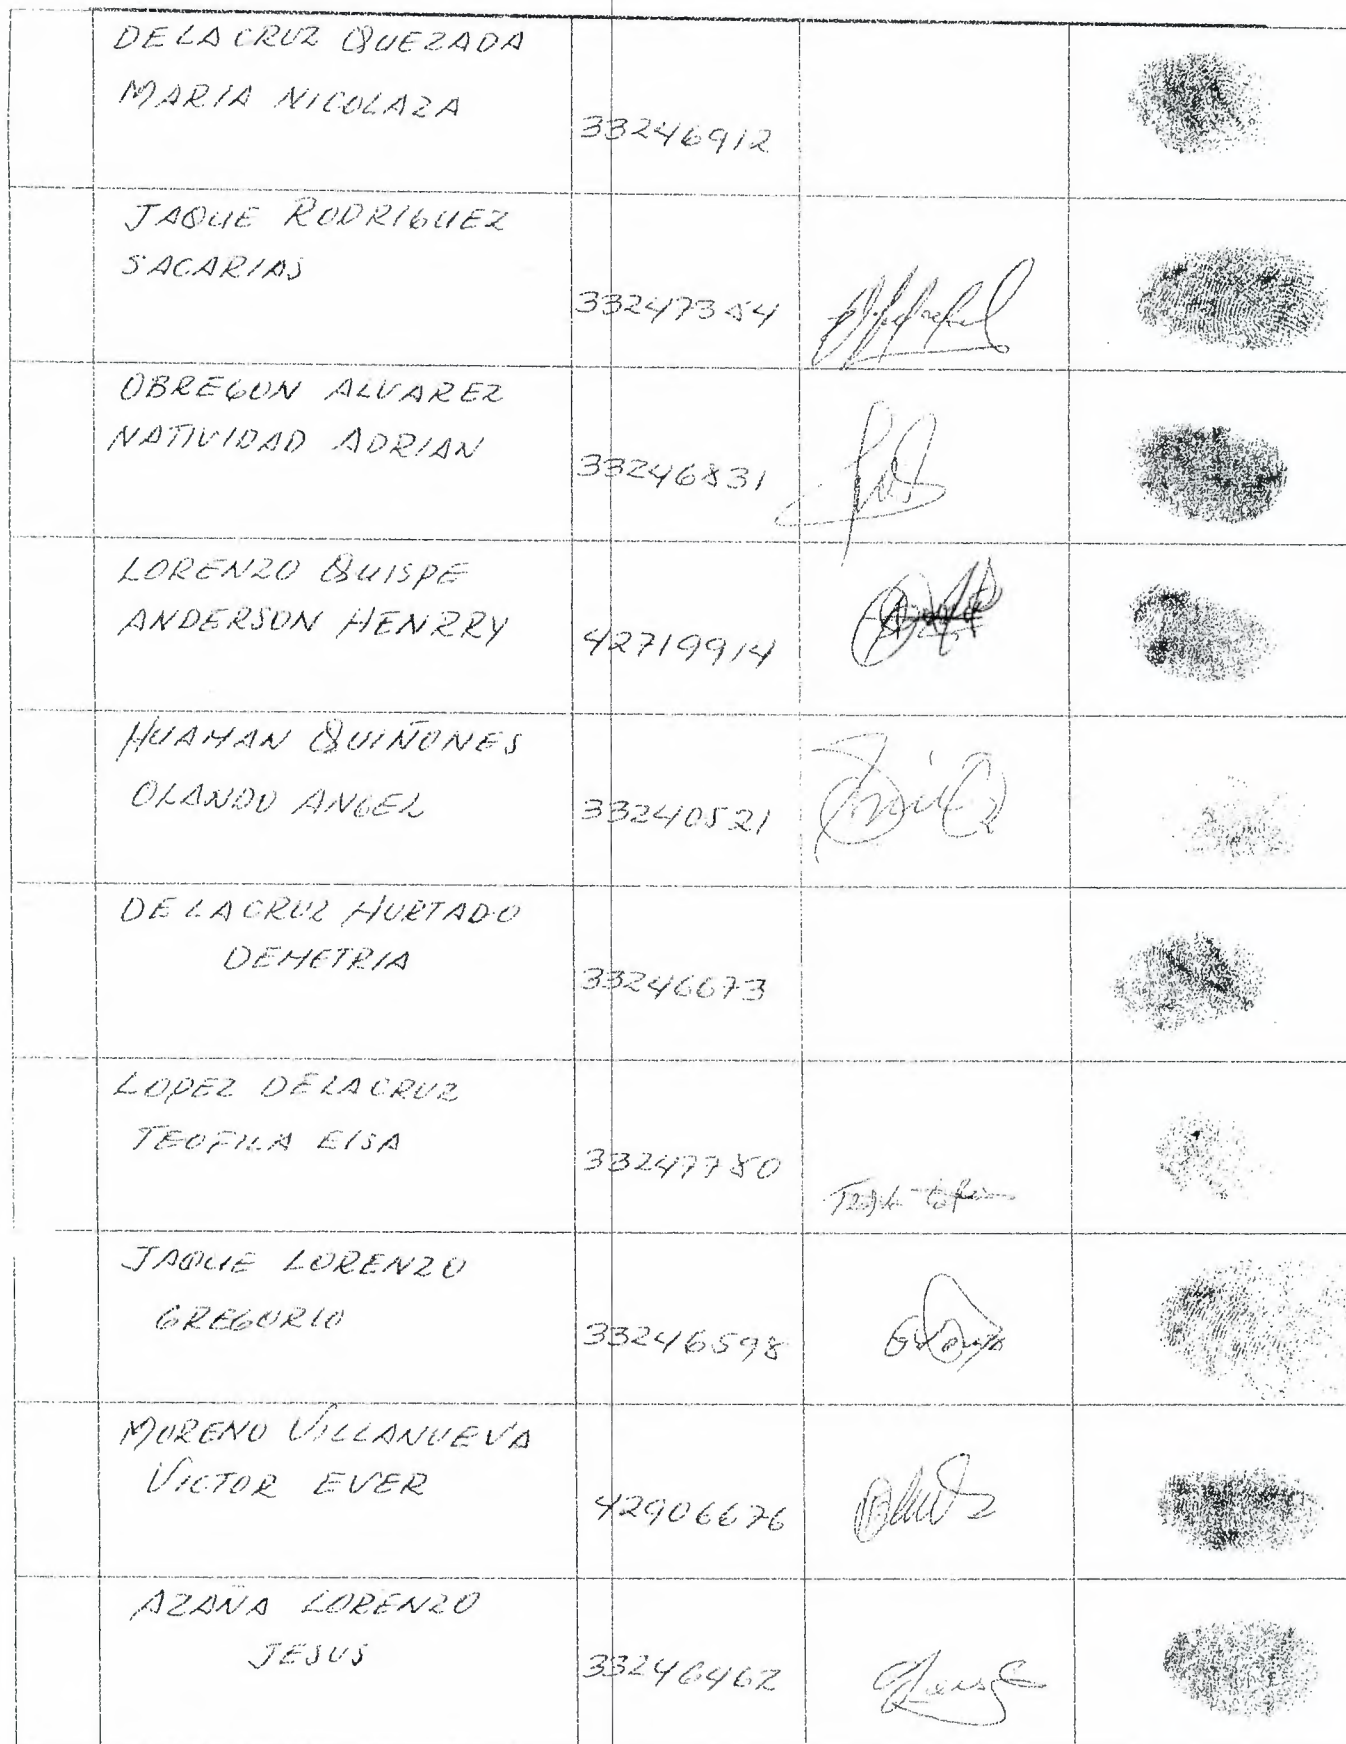 DE LA CRUZ QUEZADA
MARIA NICOLAZA
33246912
JAQUE RODRIGUEZ
SACARIAS
33247354
OBREGON ALVAREZ
NATIVIDAD ADRIAN
33246831
LORENZO QUISPE
ANDERSON HENRRY
42719914
HUAMAN QUIÑONES
OLANDO ANGEL
33240521
DE LA CRUZ HURTADO
DEMETRIA
33246673
LOPEZ DE LA CRUZ
TEOFILA ELSA
33247780
JAQUE LORENZO
GREGORIO
33246598
MORENO VILLANUEVA
VICTOR EVER
42906676
AZAÑA LORENZO
JESUS
33246462